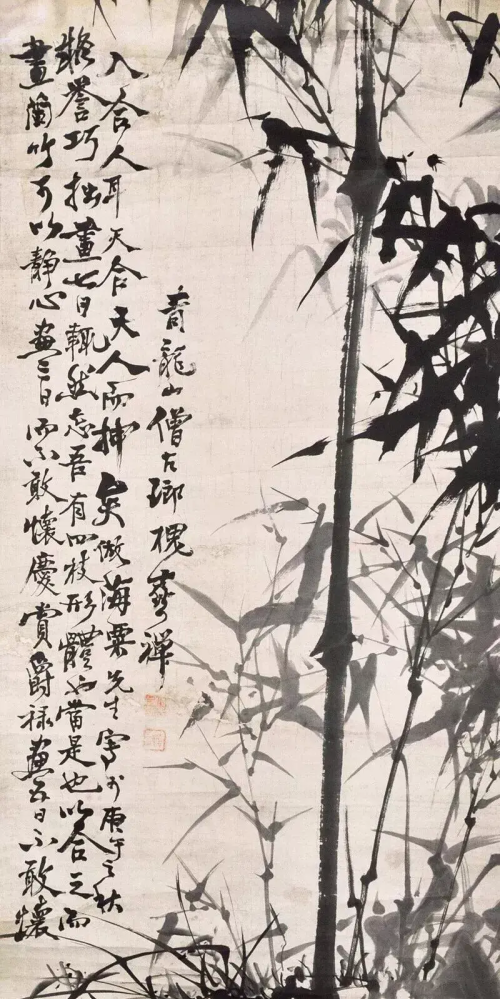 畫蘭竹可以靜心畫三日而不敢懷慶賞爵祿畫五日不敢懷
譽巧拙畫七日輒然忘吾有四枝形體也當是也以合之而
入合人耳天合天人而神矣倣海粟先生寫於庚午之秋
龍山僧古瑯槐壽禪